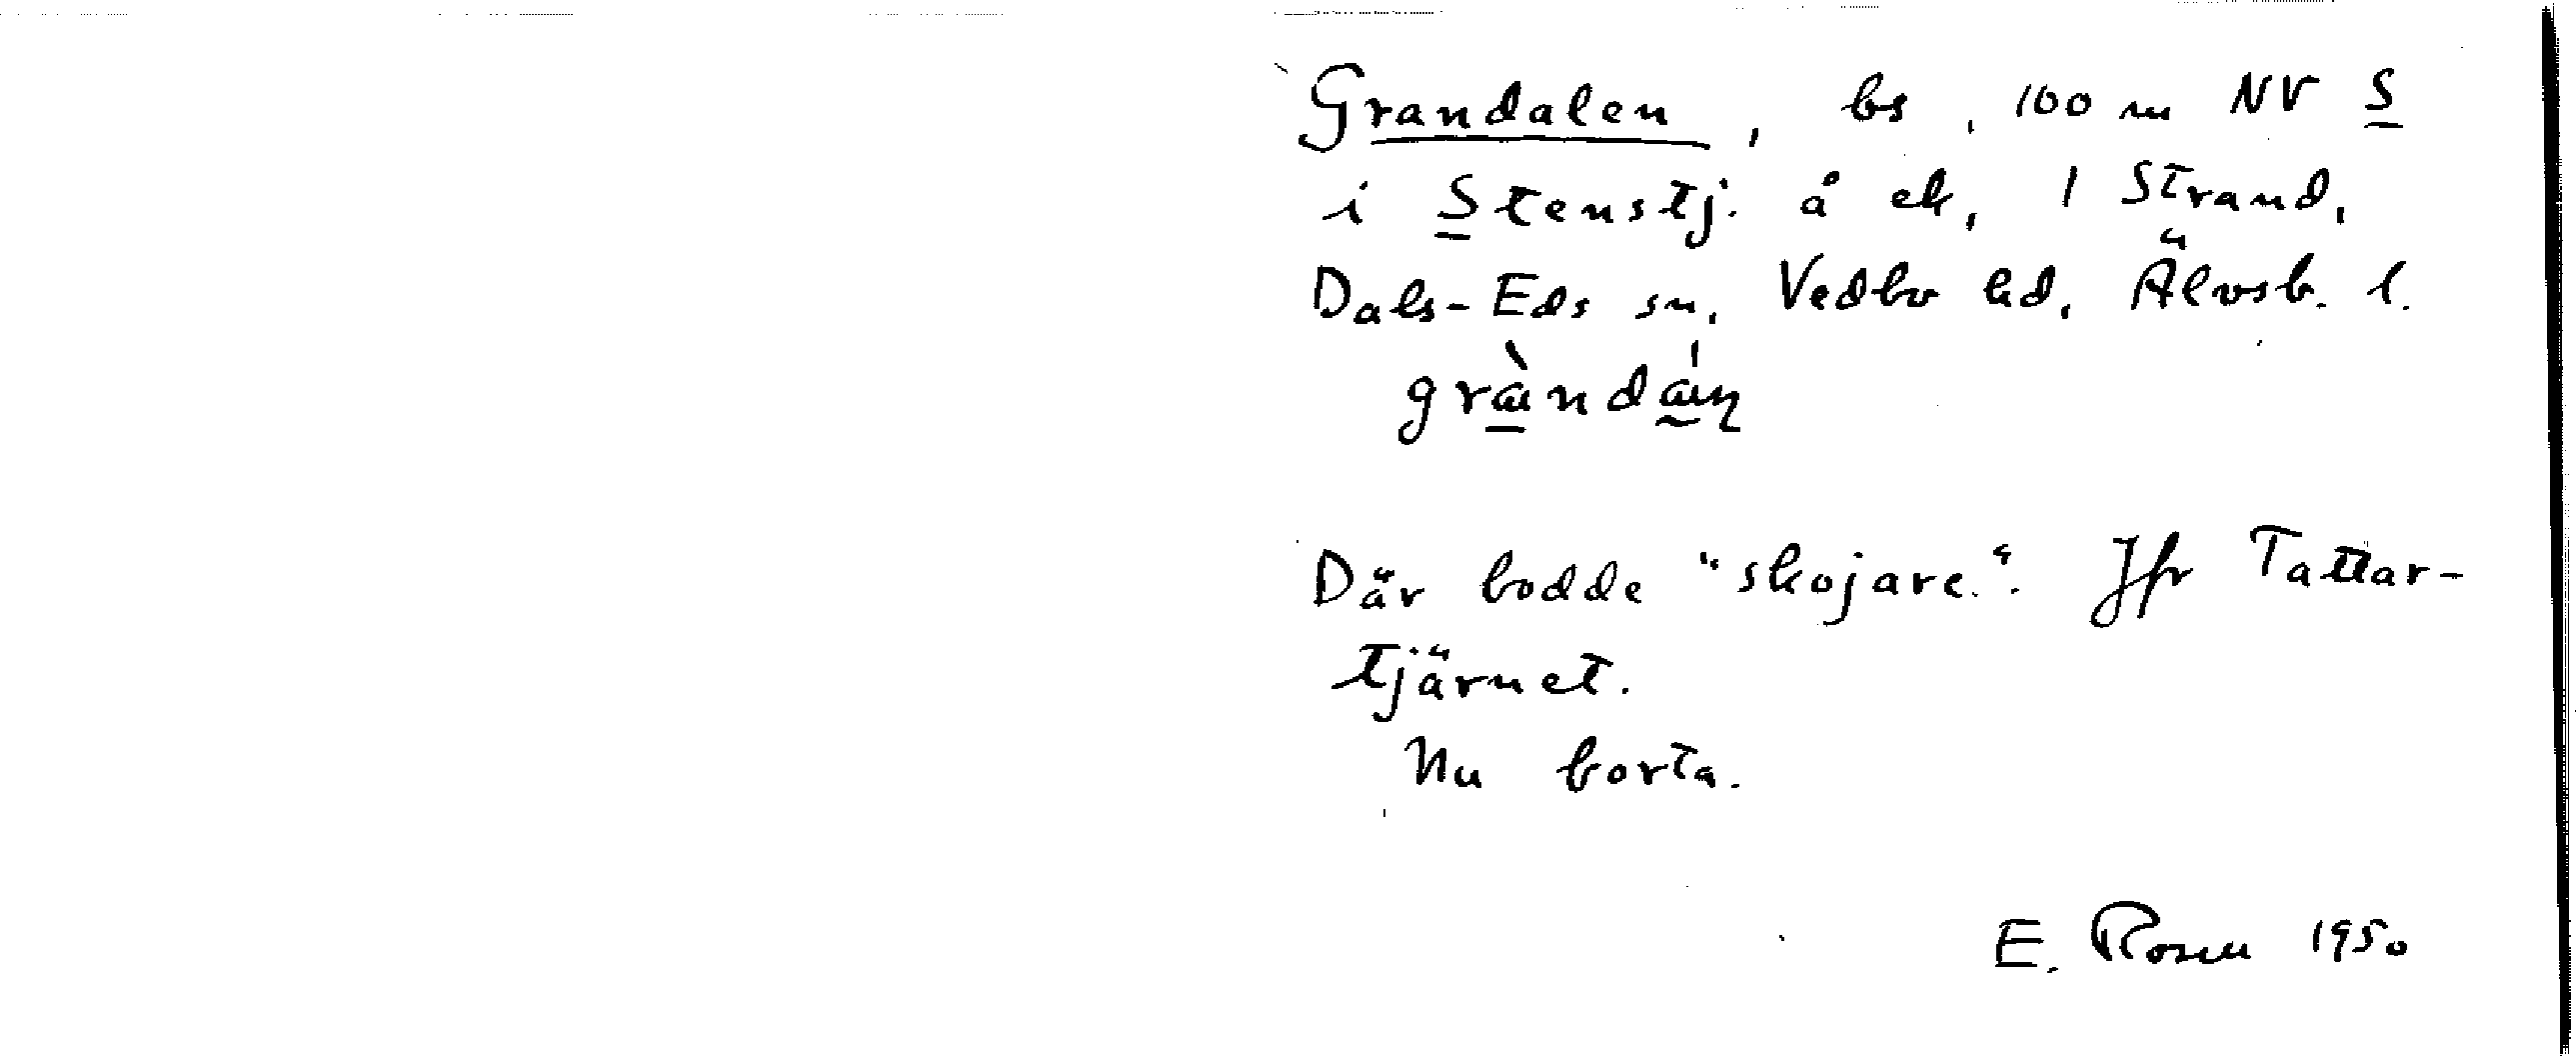 Grandalen, bs, 100 m NV S
i Stenstj. å ek, 1 Strand,
Dals-Eds sn, Vedbo hd, Älvsb. l.
Där bodde "skojare.". Jfr Tattar-
tjärnet.
Nu borta.
E. Rosen 1950